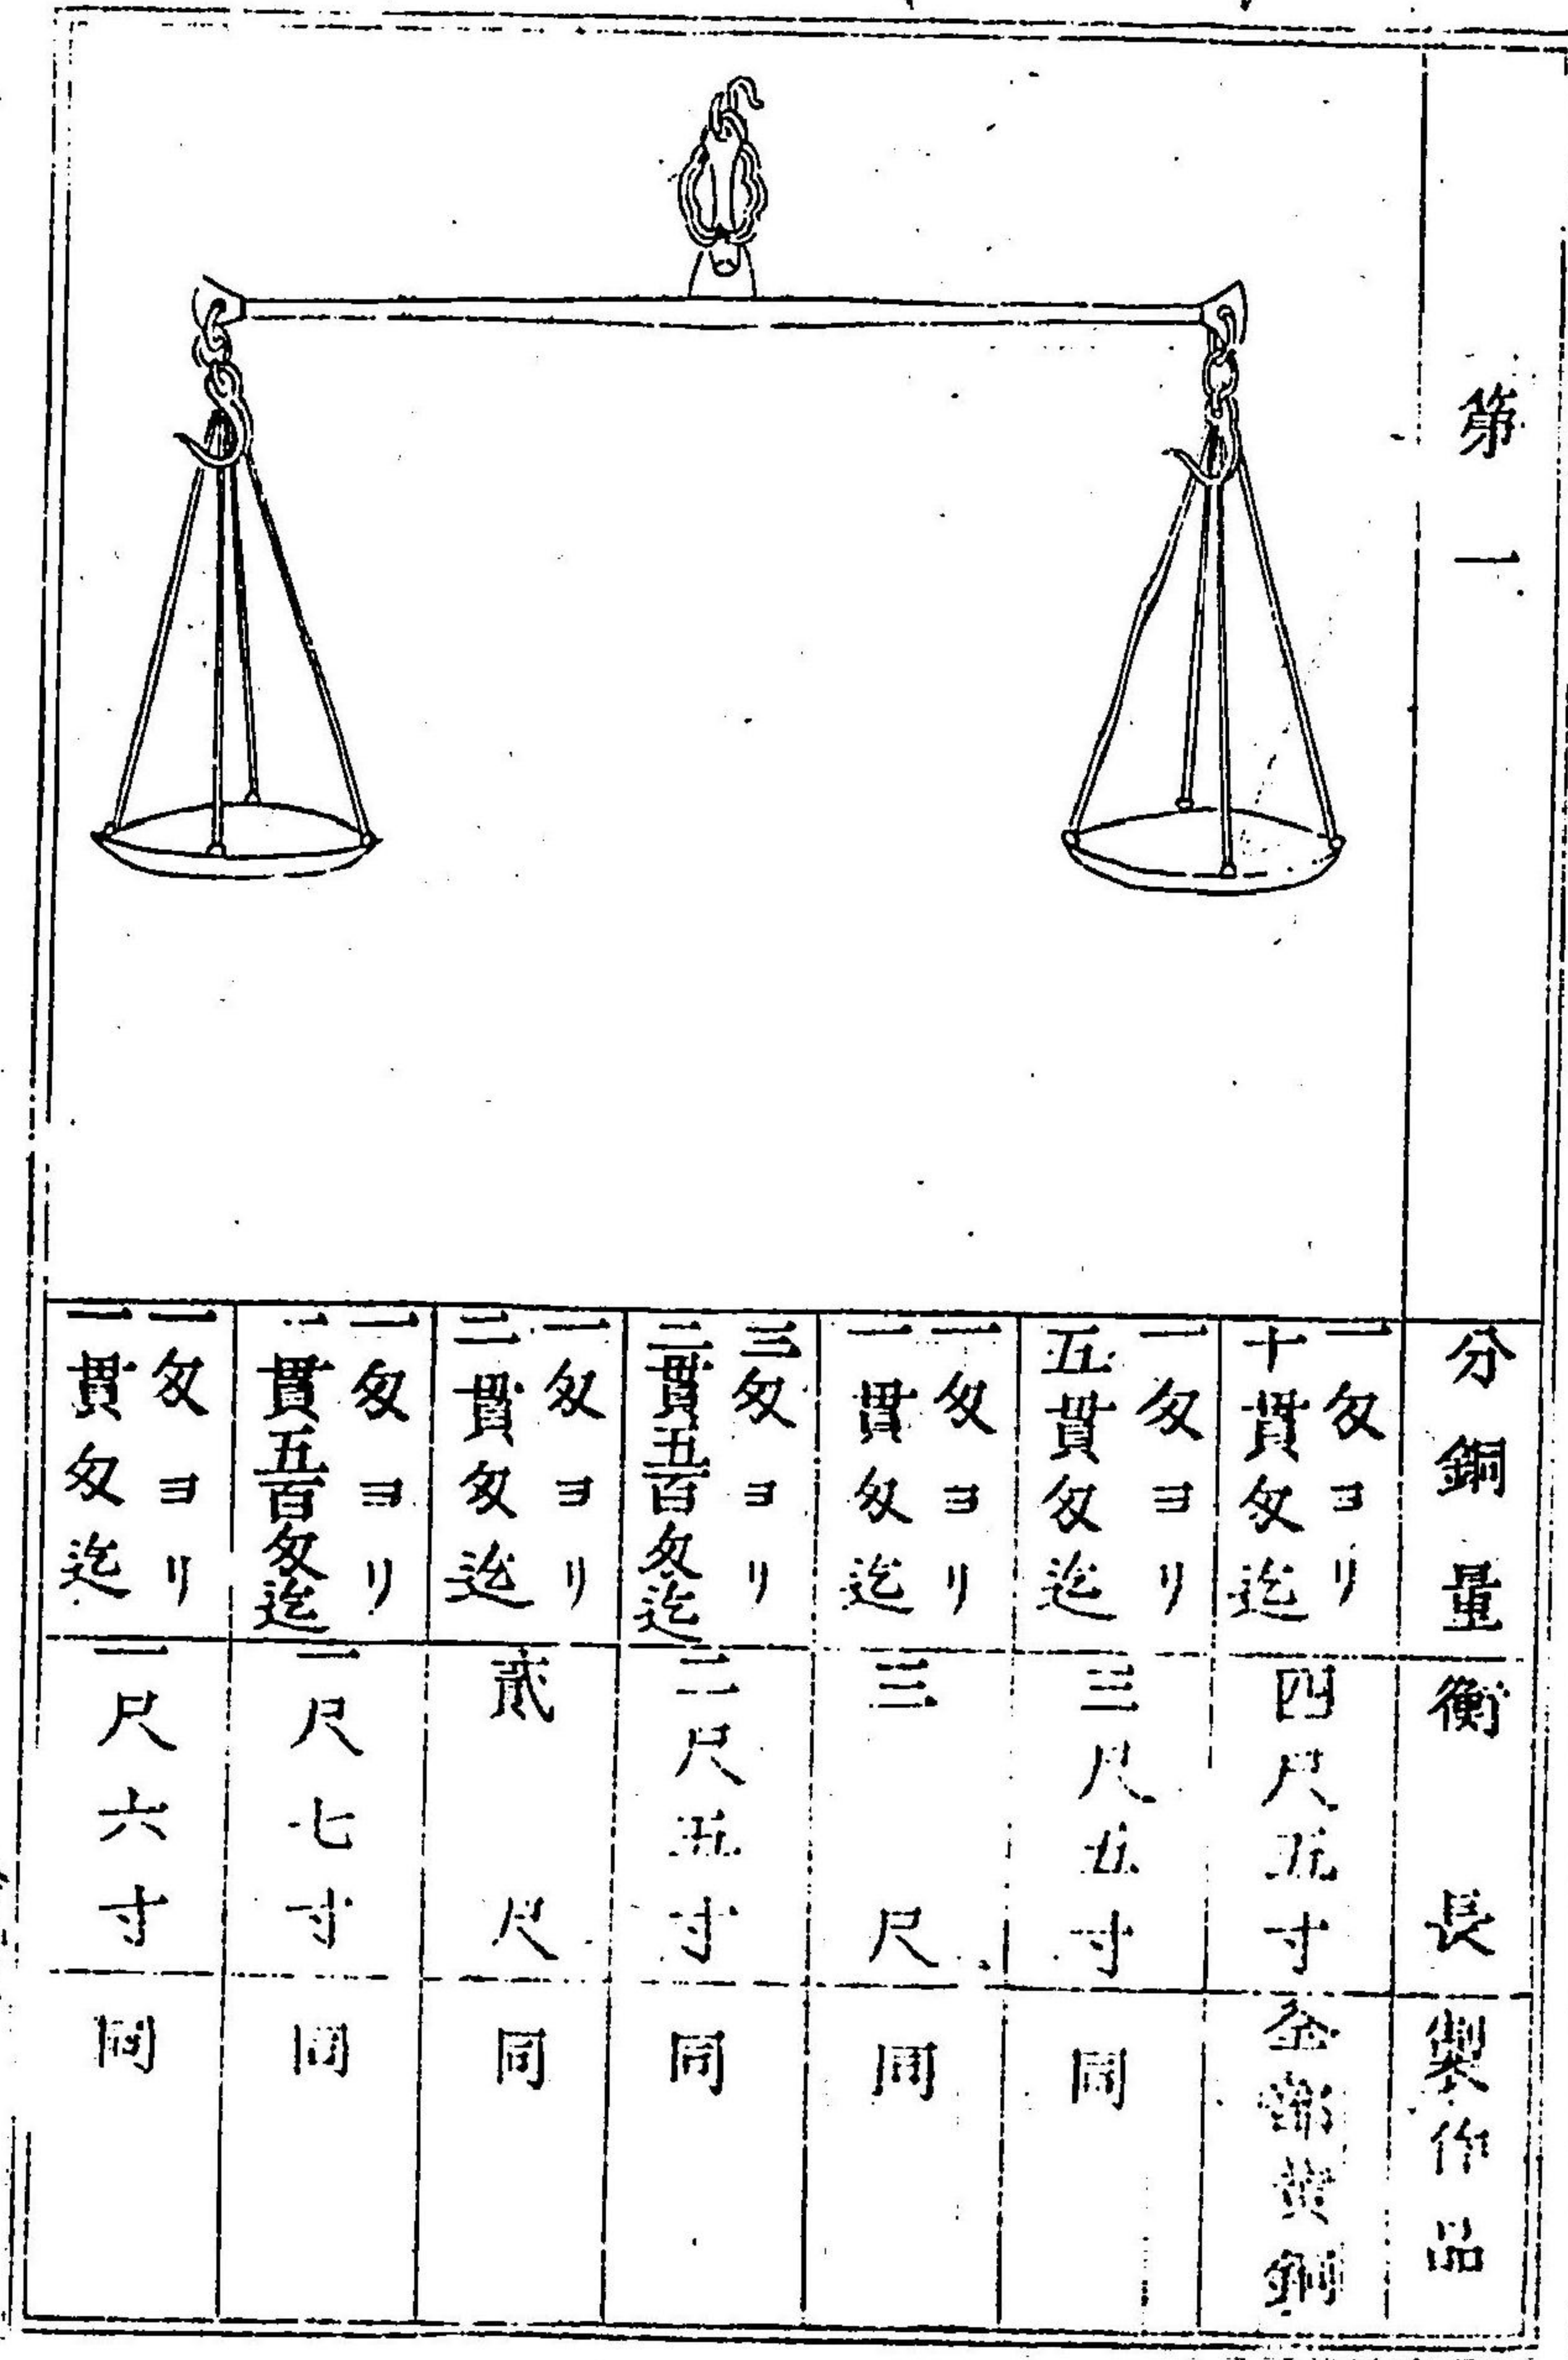 第一
分銅量
衡長
製作品
一匁ヨリ
十貫匁迄
四尺五寸
全部黄銅
一匁ヨリ
五貫匁迄
三尺五寸
同
一匁ヨリ
貫匁迄
三尺
同
三匁ヨリ
二貫五百匁迄
二尺五寸
同
一匁ヨリ
二貫匁迄
貳尺
同
一匁ヨリ
貫五百匁迄
一尺七寸
同
一匁ヨリ
一貫匁迄
一尺六寸
同